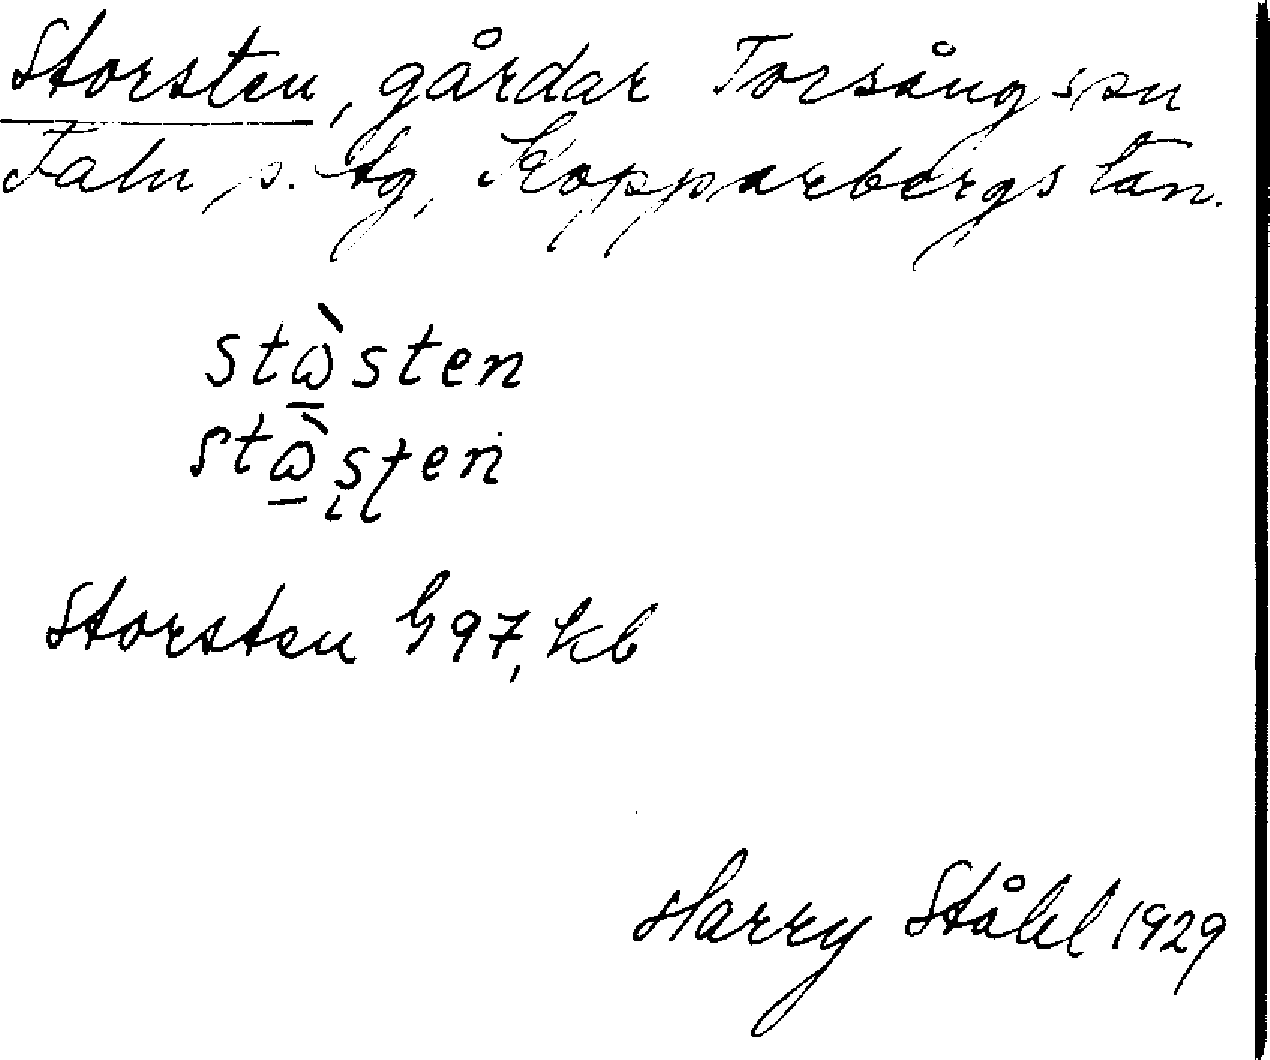 Storsten, gårdar Torsångs sn
Falu s. tg, Kopparbergs län.
stὼ̲sten
stὼ̲ʂʈen
Storsten G 97, kb
Harry Ståhl 1929